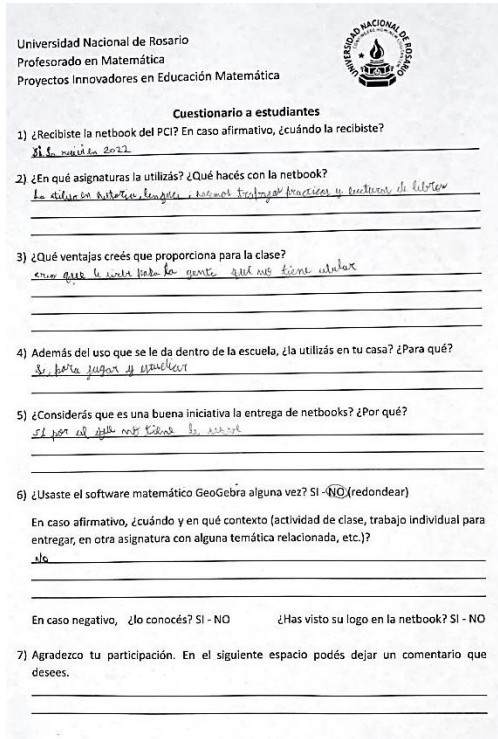 Universidad Nacional de Rosario
Profesorado en Matemática
Proyectos Innovadores en Educación Matemática
UNIVERSIDAD NACIONAL DE ROSARIO
Cuestionario a estudiantes
1) ¿Recibiste la netbook del PCI? En caso afirmativo, ¿cuándo la recibiste?
Si. La en 2022
2) ¿En qué asignaturas la utilizás? ¿Qué hacés con la netbook?
La en historia, lengua, trabajos practicos y lecturas de libros
3) ¿Qué ventajas creés que proporciona para la clase?
creo que le sirve para la gente que no tiene celular
4) Además del uso que se le da dentro de la escuela, ¿la utilizás en tu casa? ¿Para qué?
Si, para jugar y estudiar
5) ¿Considerás que es una buena iniciativa la entrega de netbooks? ¿Por qué?
por el que no tiene le sirve
6) ¿Usaste el software matemático GeoGebra alguna vez? SI - NO (redondear)
En caso afirmativo, ¿cuándo y en qué contexto (actividad de clase, trabajo individual para
entregar, en otra asignatura con alguna temática relacionada, etc.)?
No
En caso negativo, ¿lo conocés? SI - NO ¿Has visto su logo en la netbook? SI - NO
7) Agradezco tu participación. En el siguiente espacio podés dejar un comentario que
desees.